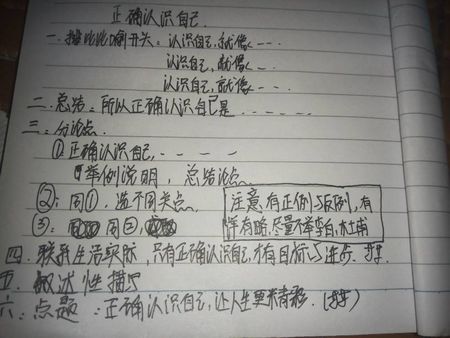 正确认识自己.
一.排比比喻开头：认识自己，就像-- -.
认识自己，就像-- -.
认识自己，就像-- -.
二.总结：所以正确认识自己是.-----
三：分论点.
①正确认识自己.- - - -
举例说明，总结论点.
②：同①.选不同关点
注意有正例与反例，有
③：同②
详有略，尽量不牵李白，杜甫
四.联系生活实际，只有正确认识自己，才有目标与进步.
五.叙述性描写
六：点题：正确认识自己，让人生更来精彩.